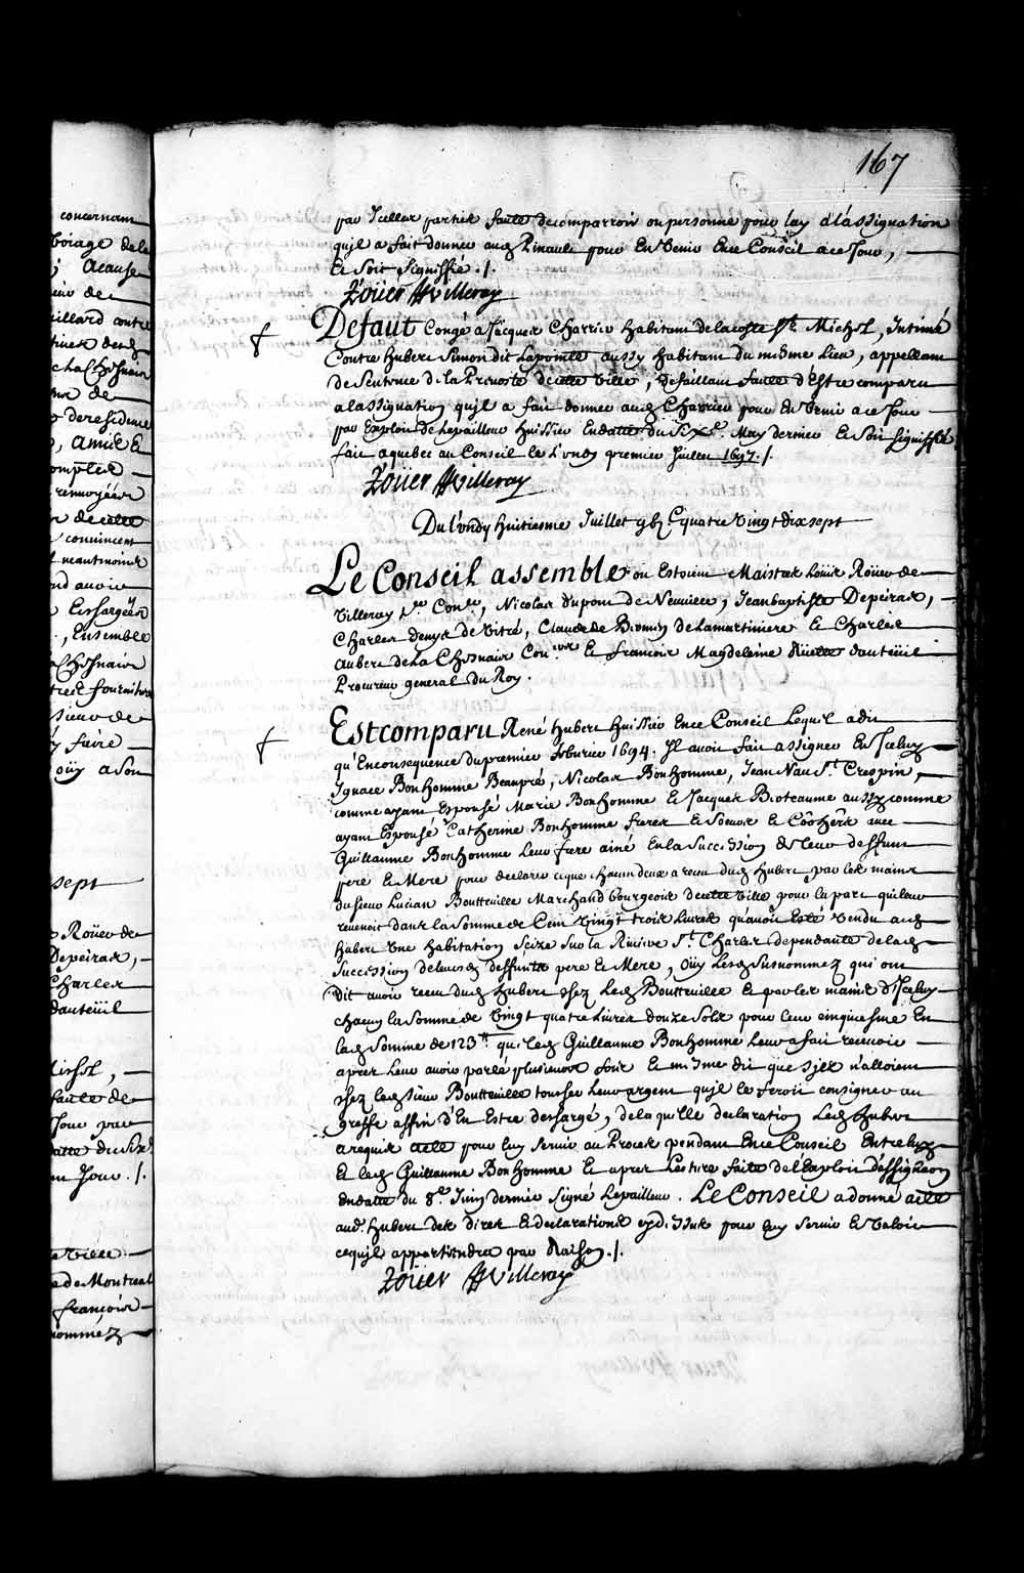 167
par Icelles parties faulte de comparroir ou personne pour luy a l'assignation
qu'jl a fait donner aud. Pinault pour En Venir En ce Conseil a ce Jour,
Et Soit Signiffié ./.
Roüer de Villeray
Defaut Congé a Jacques Charrier habitant de la coste St. Michel, Intimé
Contre hubert Simon dit Lapointe aussy habitant du mesme Lieu, appellant
de Sentence de la Prevosté de cette Ville, defaillant faulte d'Estre comparu
a l'assignation qu'jl a fait donner aud. Charrier pour En Venir a ce Jour
par Exploit de Lepailleur huissier En datte du Sixe. May dernier Et Soit signiffié
fait a quebec au Conseil le Lundy premier Juillet 1697 ./.
Roüer de Villeray
Du Lundy huitiesme Juillet gbj C quatre Vingt dix sept
Le Conseil assemble ou Estoient Maistres Louis Roüer de
Villeray per. Coner., Nicolas dupont de Neuville, Jean baptiste Depeiras,
Charles denys de Vitré, Claude de Bermen de Lamartiniere Et Charles
Aubert de La Chesnaie Con.ers Et francois Magdeleine Ruette dauteüil
Procureur general du Roy.
Est comparu René hubert huissier En ce Conseil Lequel a dit
qu'En consequence du premier feburier 1694. Jl avoit fait assigner En Iceluy
Ignace Bonhomme Beaupré, Nicolas Bonhomme, Jean Nau St. Crespin,
comme ayant Espousé Marie Bonhomme Et Jacques Bioteaume aussy comme
ayant Espousé Catherine Bonhomme freres Et Soeurs Et Cohers. avec
Guillaume Bonhomme Leur frere ainé En la Succession de Leur deffunt
pere Et Mere pour declarer ce que chacun deux a receu dud. hubert par les mains
du sieur Lucien Boutteville Marchand bourgeois de cette Ville pour la part qui leur
revenoit dans la Somme de Cent Vingt trois Livres qu'avoit Esté Vendu aud.
hubert Vne habitation Scize Sur la Riviere St. Charles dependante de lad.
Succession de leursd. deffunts pere Et Mere, Oüy Lesd. Susnommez qui ont
dit avoir receu dud. hubert chez Led. Boutteville Et par les mains d'Iceluy
chacun la Somme de Vingt quatre Livres douze Sols pour leur cinquiesme En
lad. Somme de 123 tt que led. Guillaume Bonhomme Leur a fait recevoir
apres Leur avoir parlé plusieurs fois Et mesme dit que s'jls n'alloient
chez led. sieur Boutteville toucher Leur argent qu'jl le feroit consigner au
greffe affin d'En Estre deschargé, de laquelle declaration Led. hubert
a requis acte pour luy Servir au Proces pendant En ce Conseil Entre luy
Et led. Guillaume Bonhomme Et apres Lecture faite de l'Exploit d'assignaon
En datte du 8e. Juin dernier Signé Lepailleur. Le Conseil a donné acte
aud. hubert des dires Et declarations cy dessus pour luy Servir Et Valoir
ce qu'jl appartiendra par Raison ./.
Roüer de Villeray